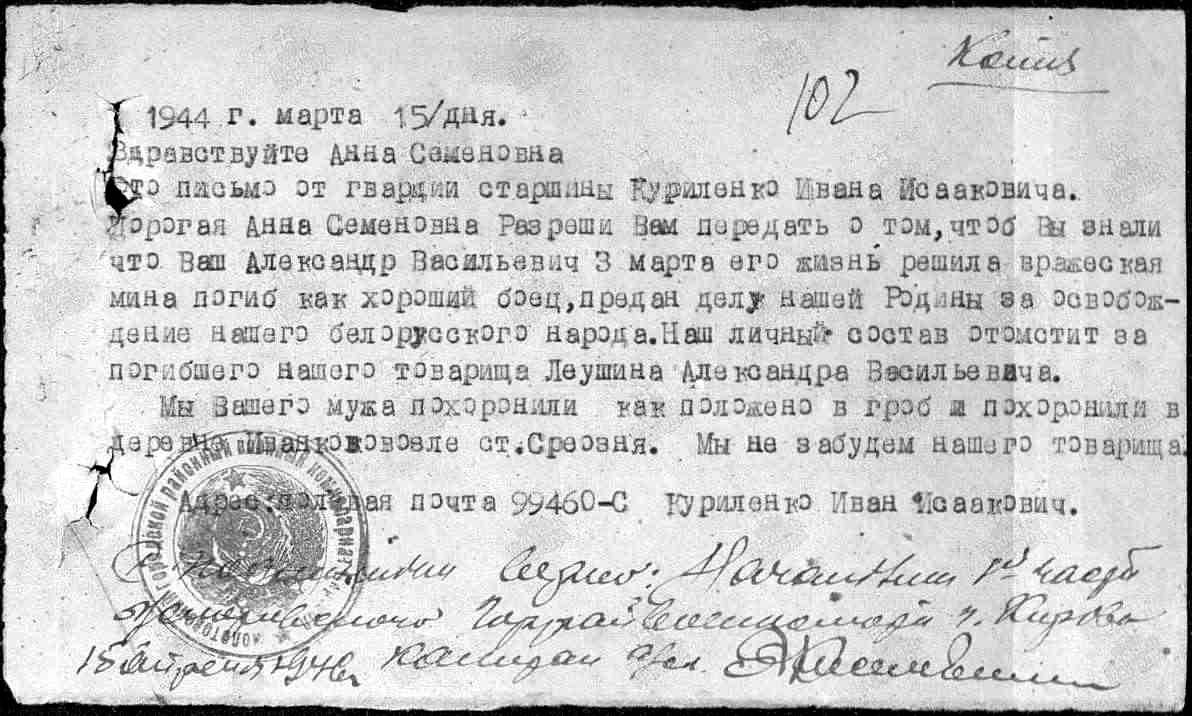 Копия
102
1944 г. марта 15/дня.
Здравствуйте Анна Семеновна
Это письмо от гвардии старшины Куриленко Ивана Исааковича.
Дорогая Анна Семеновна Разреши Вам передать о том,чтоб Вы знали
что Ваш Александр Васильевич 3 марта его жизнь решила вражеская
мина погиб как хороший боец,предан делу нашей Родины за освобож-
дение нашего белорусского народа.Наш личный состав отомстит за
погибшего нашего товарища Леушина Александра Васильевича.
Мы Вашего мужа похоронили как положено в гроб и похоронили в
деревне ст.Среозня. Мы не забудем нашего товарища.
Адрес:полевая почта 99460-С Куриленко Иван Исаакович.
С подлинным верно: Начальник 1й части
Горрайвоенкомата г. Кирова
15 апреля 1946г капитан адм.
районный военный комиссариат